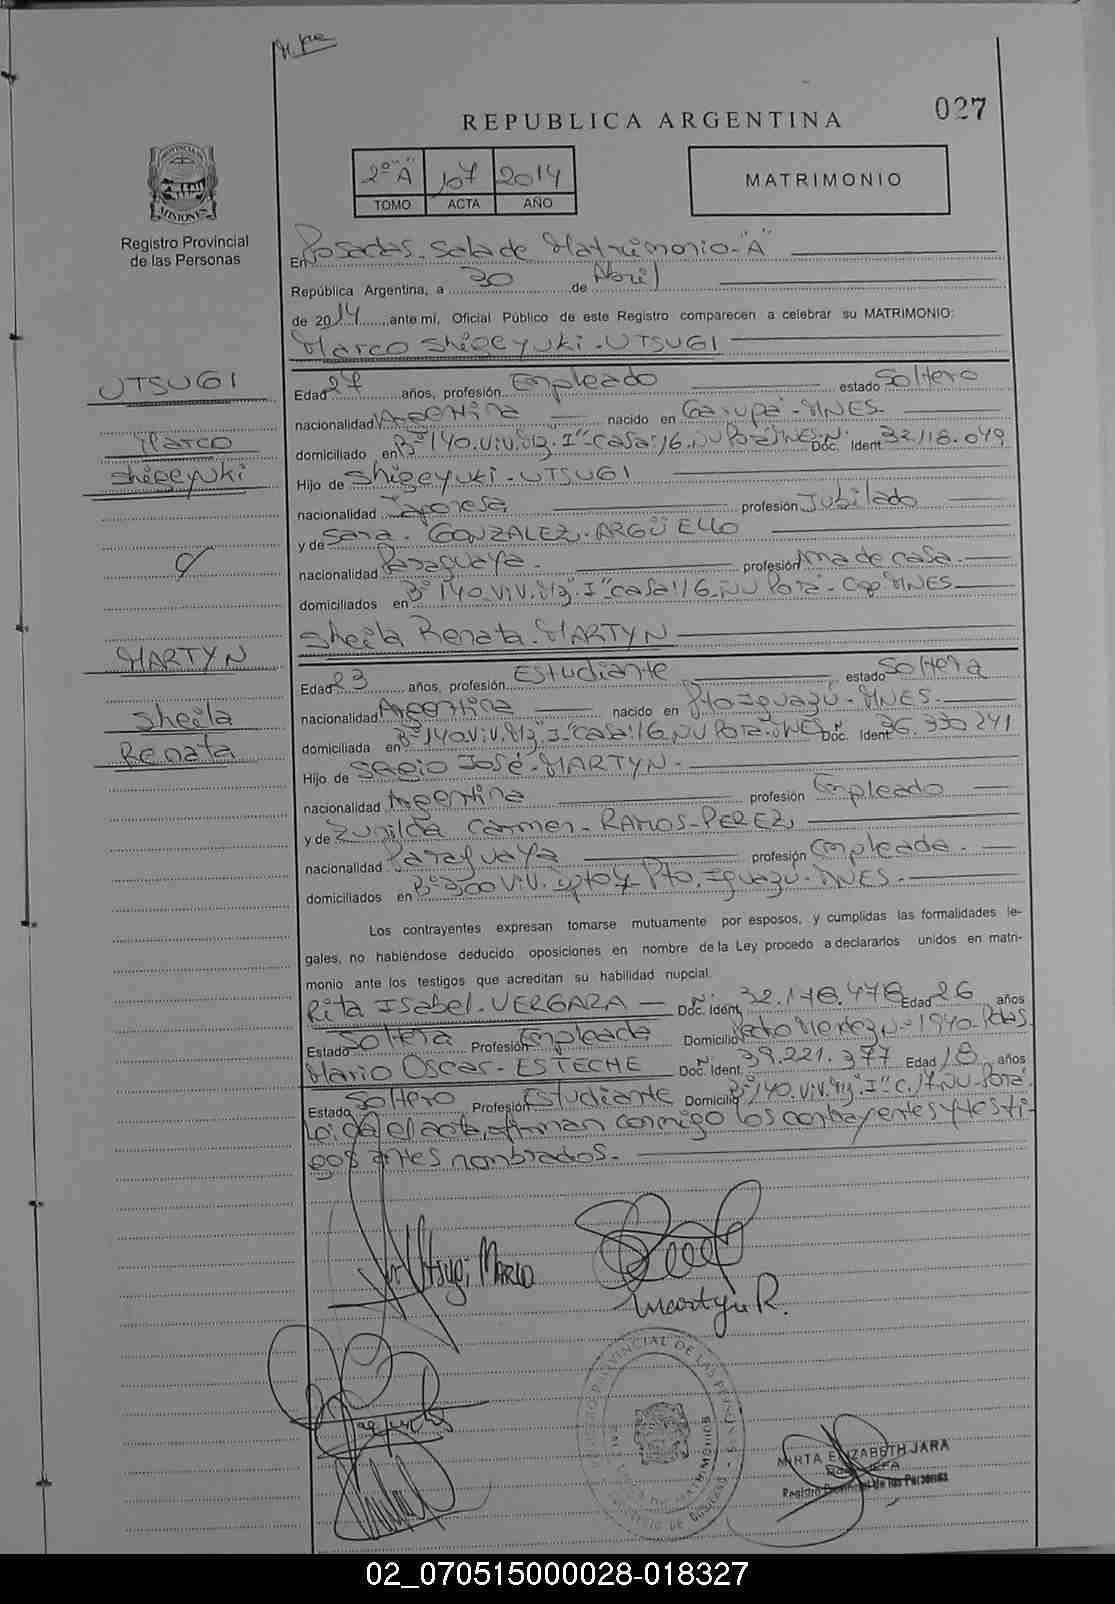 027
REPUBLICA ARGENTINA
2º"A" 107 2014
TOMO ACTA AÑO
MATRIMONIO
Registro Provincial
de las Personas
En Posadas. Sala de Matrimonio-"A"
República Argentina, a 30 de Abril
de 2014, ante mí, Oficial Público de este Registro comparecen a celebrar su MATRIMONIO:
Marco Shigeyuki - UTSUGI
UTSUGI
Marco
Shigeyuki
y
MARTYN
Sheila
Renata
Edad 27 años, profesión Empleado estado Soltero
nacionalidad Argentina nacido en Garupá - MNES.
domiciliado en Bº 140.Viv. Mz. I" Casa: 16. Ñu Porá MNES. Doc. Ident 32.118.049
Hijo de Shigeyuki - UTSUGI
nacionalidad Japonesa profesión Jubilado
y de Sara. GONZALEZ. ARGÜELLO
nacionalidad Paraguaya. profesión Ama de casa.
domiciliados en Bº 140.Viv. Mz. I" Casa: 16. Ñu Porá - Cap. MNES
Sheila Renata. MARTYN
Edad 23 años, profesión Estudiante estado Soltera
nacionalidad Argentina nacido en Pto. Iguazú - MNES.
domiciliada en Bº 140.Viv. Mz. I" Casa: 16. Ñu Porá. MNES Doc. Ident 36.330241
Hijo de Sergio José - MARTYN.
nacionalidad Argentina profesión Empleado
y de Zunilda Carmen - RAMOS - PEREZ,
nacionalidad Paraguaya profesión Empleada.
domiciliados en Bº 3500 Viv. Dpto 4 Pto. Iguazú - MNES.
Los contrayentes expresan tomarse mutuamente por esposos, y cumplidas las formalidades le-
gales, no habiéndose deducido oposiciones en nombre de la Ley procedo a declararlos unidos en matri-
monio ante los testigos que acreditan su habilidad nupcial.
Rita Isabel - VERGARA Doc. Ident 32.178.478 Edad 26 años
Estado Soltera Profesión Empleada Domicilio Pedro Mendez Nº 1940 - Pdas
Mario Oscar - ESTECHE Doc. Ident. 39.221.377 Edad 18 años
Estado Soltero Profesión Estudiante Domicilio Bº 140.Viv. Mz. I" C. 17. Ñu - Porá.
Leída el acta, firman conmigo los contrayentes y testi-
gos antes nombrados.
Utsugi Marco
Martyn R.
REGISTRO PROVINCIAL DE LAS PERSONAS
MIRTA ELIZABETH JARA
Registro Provincial de las Personas
02_070515000028-018327